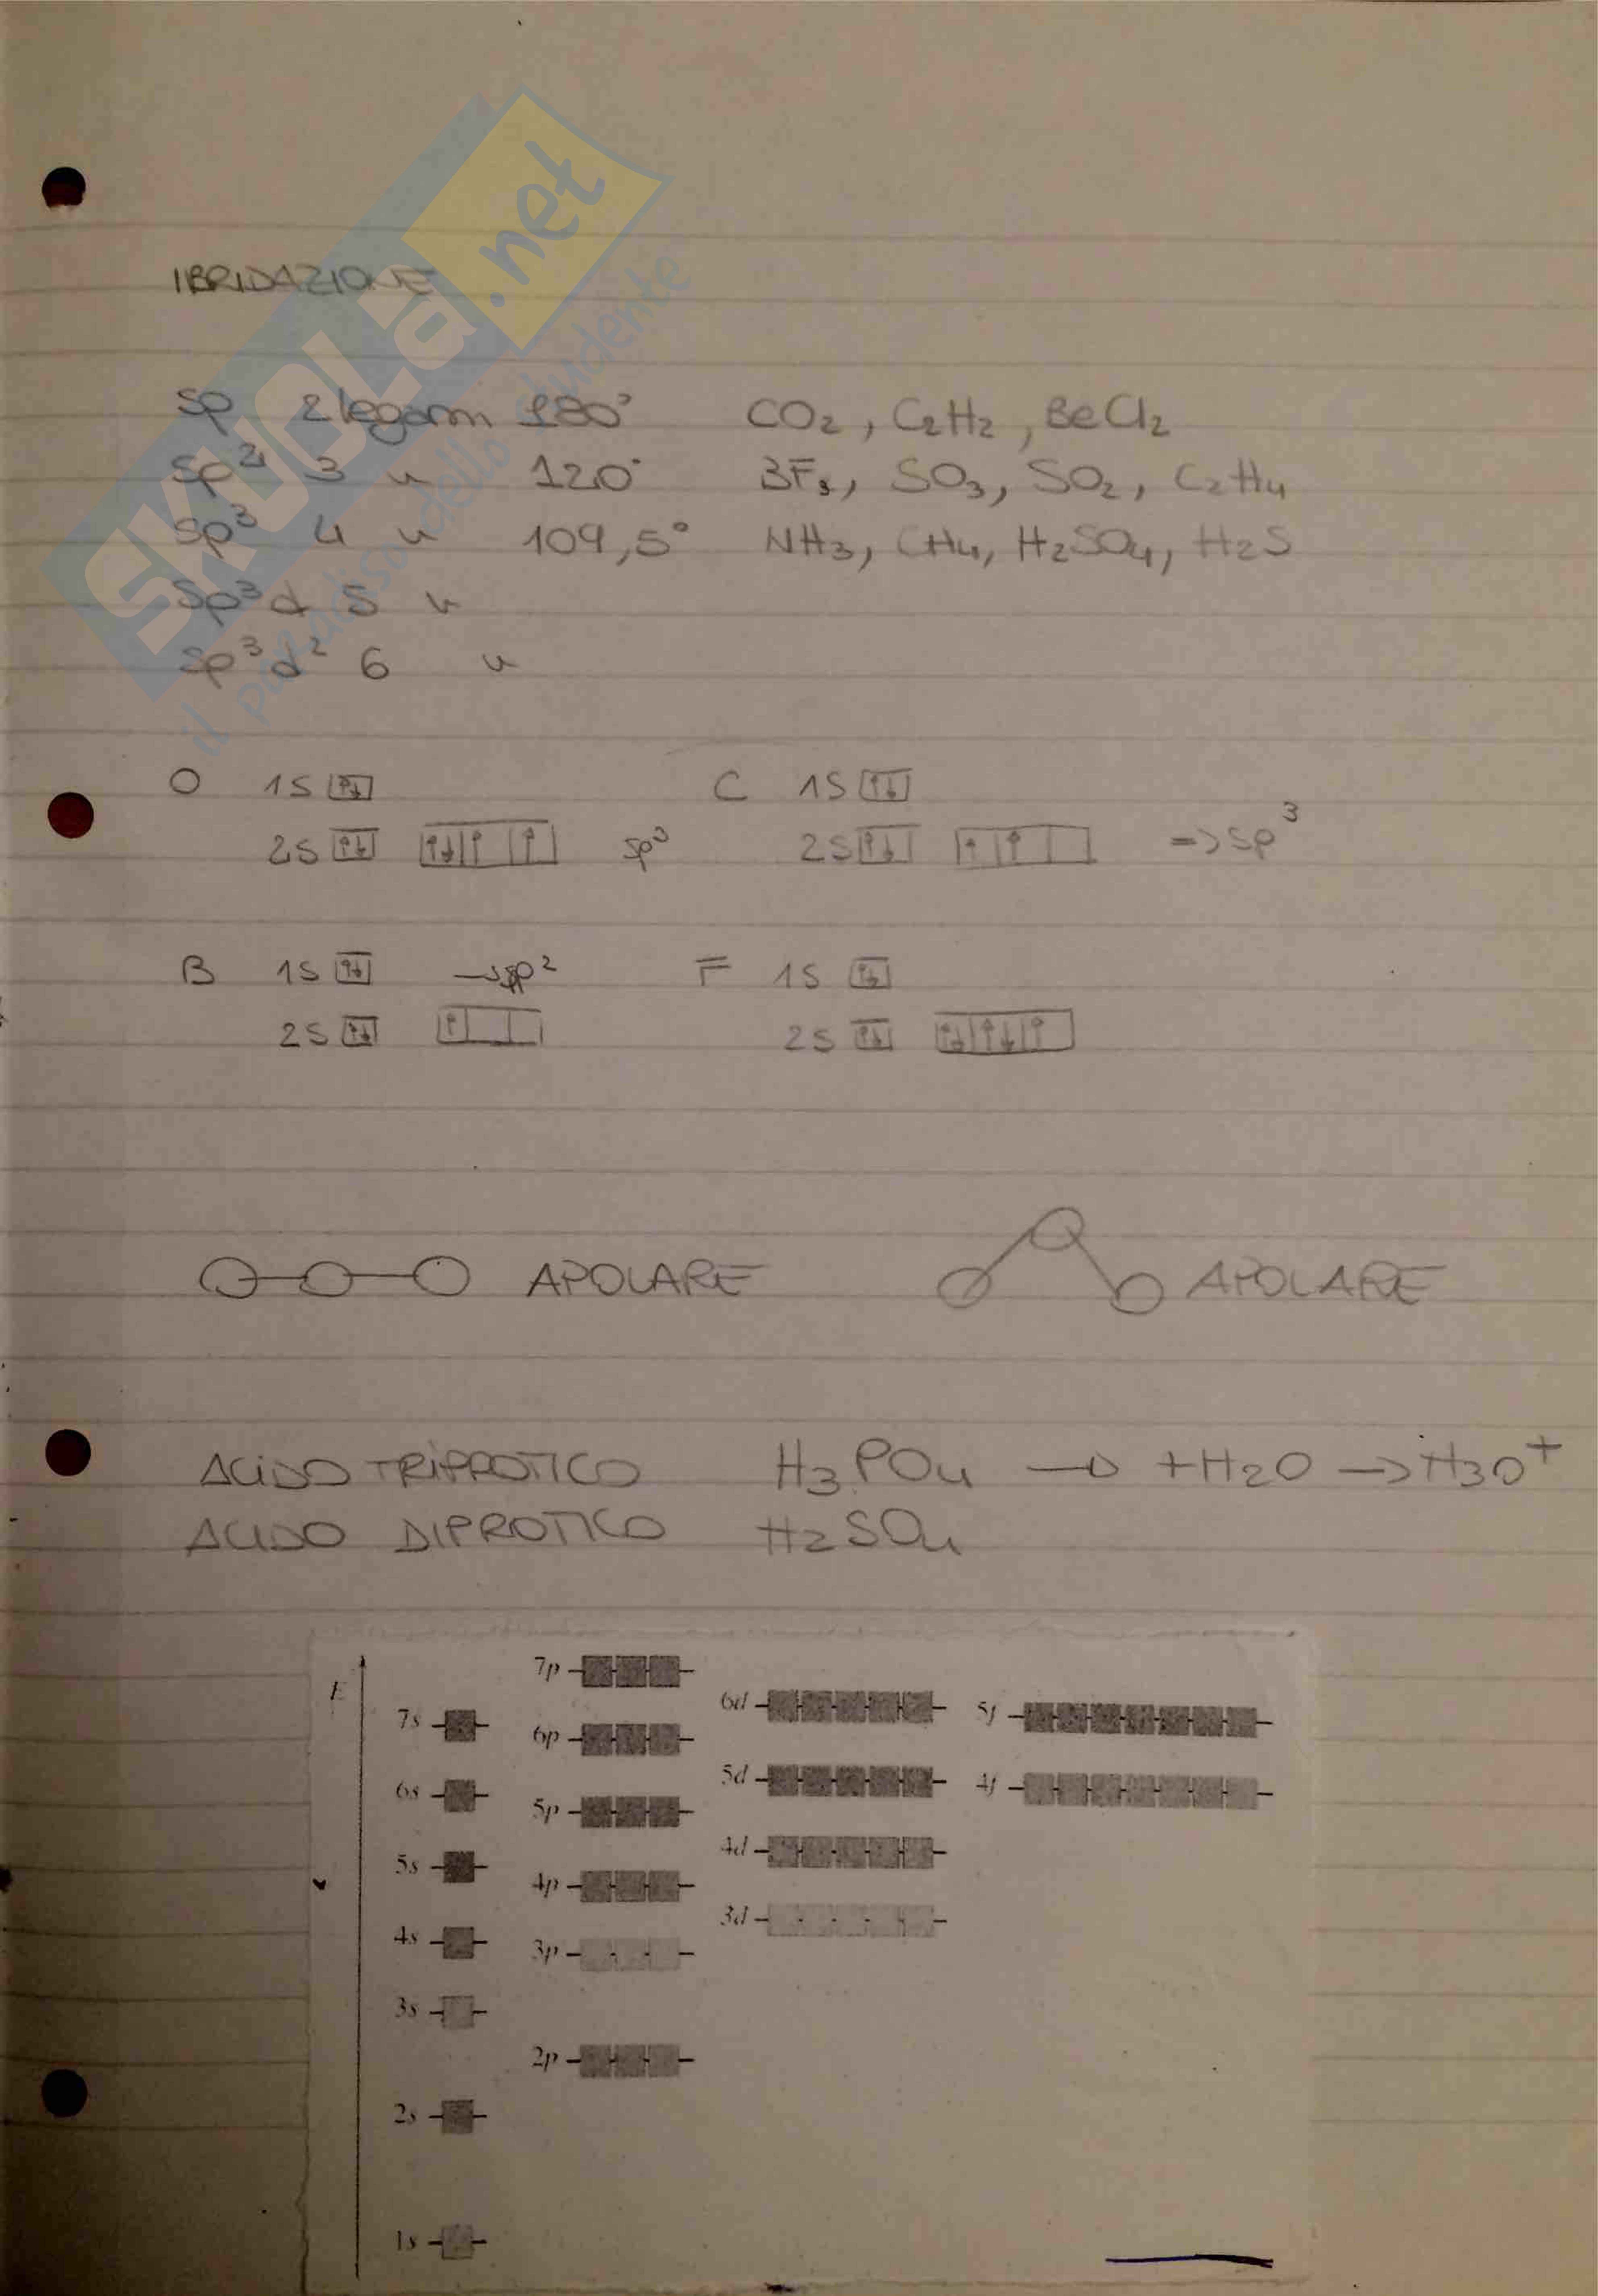 SKUOLA.net
il paradiso dello studente
IBRIDAZIONE
sp 2 legami 180° CO₂, C₂H₂, BeCl₂
sp² 3 " 120° BF₃, SO₃, SO₂, C₂H₄
sp³ 4 " 109,5° NH₃, CH₄, H₂SO₄, H₂S
sp³d 5 "
sp³d² 6 "
O 1S ↑↓ C 1S ↑↓
2S ↑↓ ↑↓ ↑ ↑ sp³ 2S ↑↓ ↑ ↑ => sp³
B 1S ↑↓ → sp² F 1S ↑↓
2S ↑↓ ↑ 2S ↑↓ ↑↓ ↑↓ ↑
APOLARE APOLARE
ACIDO TRIPROTICO H₃PO₄ → +H₂O → H₃O⁺
ACIDO DIPROTICO H₂SO₄
E
7p
6d 5f
7s
6p
5d 4f
6s
5p
4d
5s
4p
3d
4s
3p
3s
2p
2s
1s